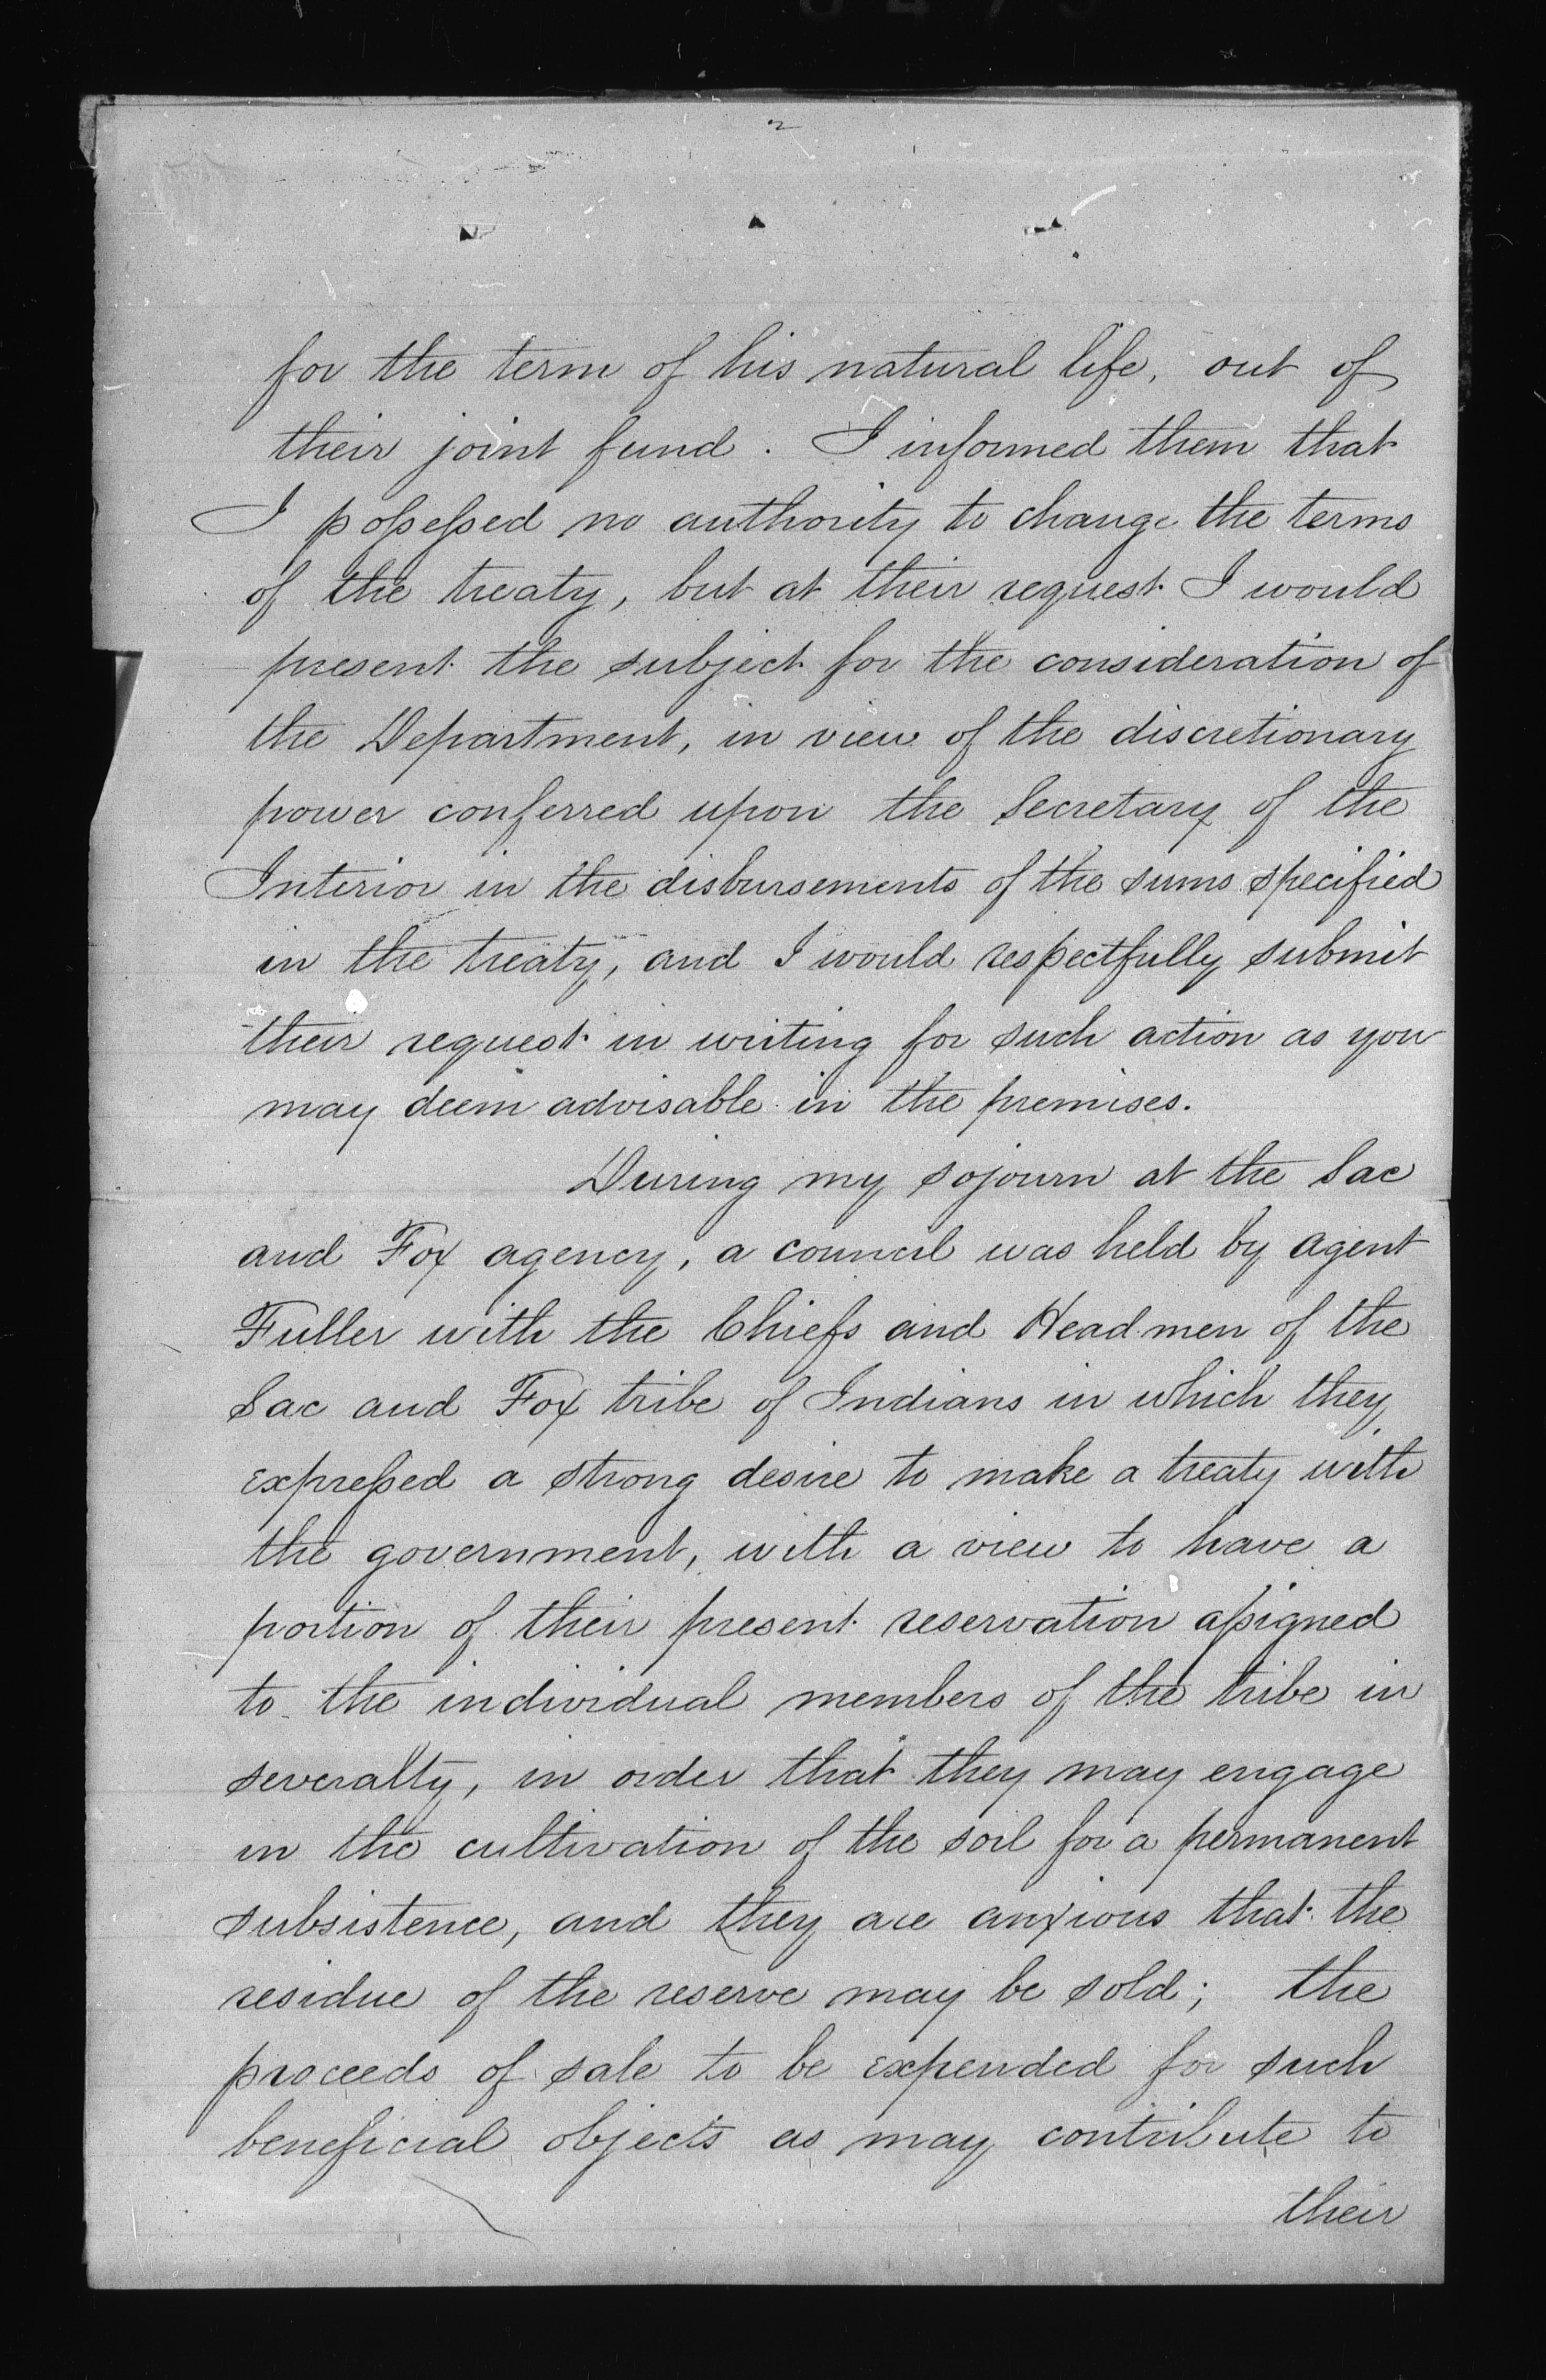 2
for the term of his natural life, out of
their joint fund. I informed them that
I possessed no authority to change the terms
of the treaty, but at their request I would
present the subject for the consideration of
the Department, in view of the discretionary
power conferred upon the Secretary of the
Interior in the disbursements of the sums specified
in the treaty, and I would respectfully submit
their request in writing for such action as you
may deem advisable in the premises.
During my sojourn at the Sac
and Fox agency, a council was held by agent
Fuller with the Chiefs and Headmen of the
Sac and Fox tribe of Indians in which they
expressed a strong desire to make a treaty with
the government, with a view to have a
portion of their present reservation assigned
to the individual members of the tribe in
severalty, in order that they may engage
in the cultivation of the soil for a permanent
subsistence, and they are anxious that the
residue of the reserve may be sold; the
proceeds of sale to be expended for such
beneficial objects as may contribute to
their